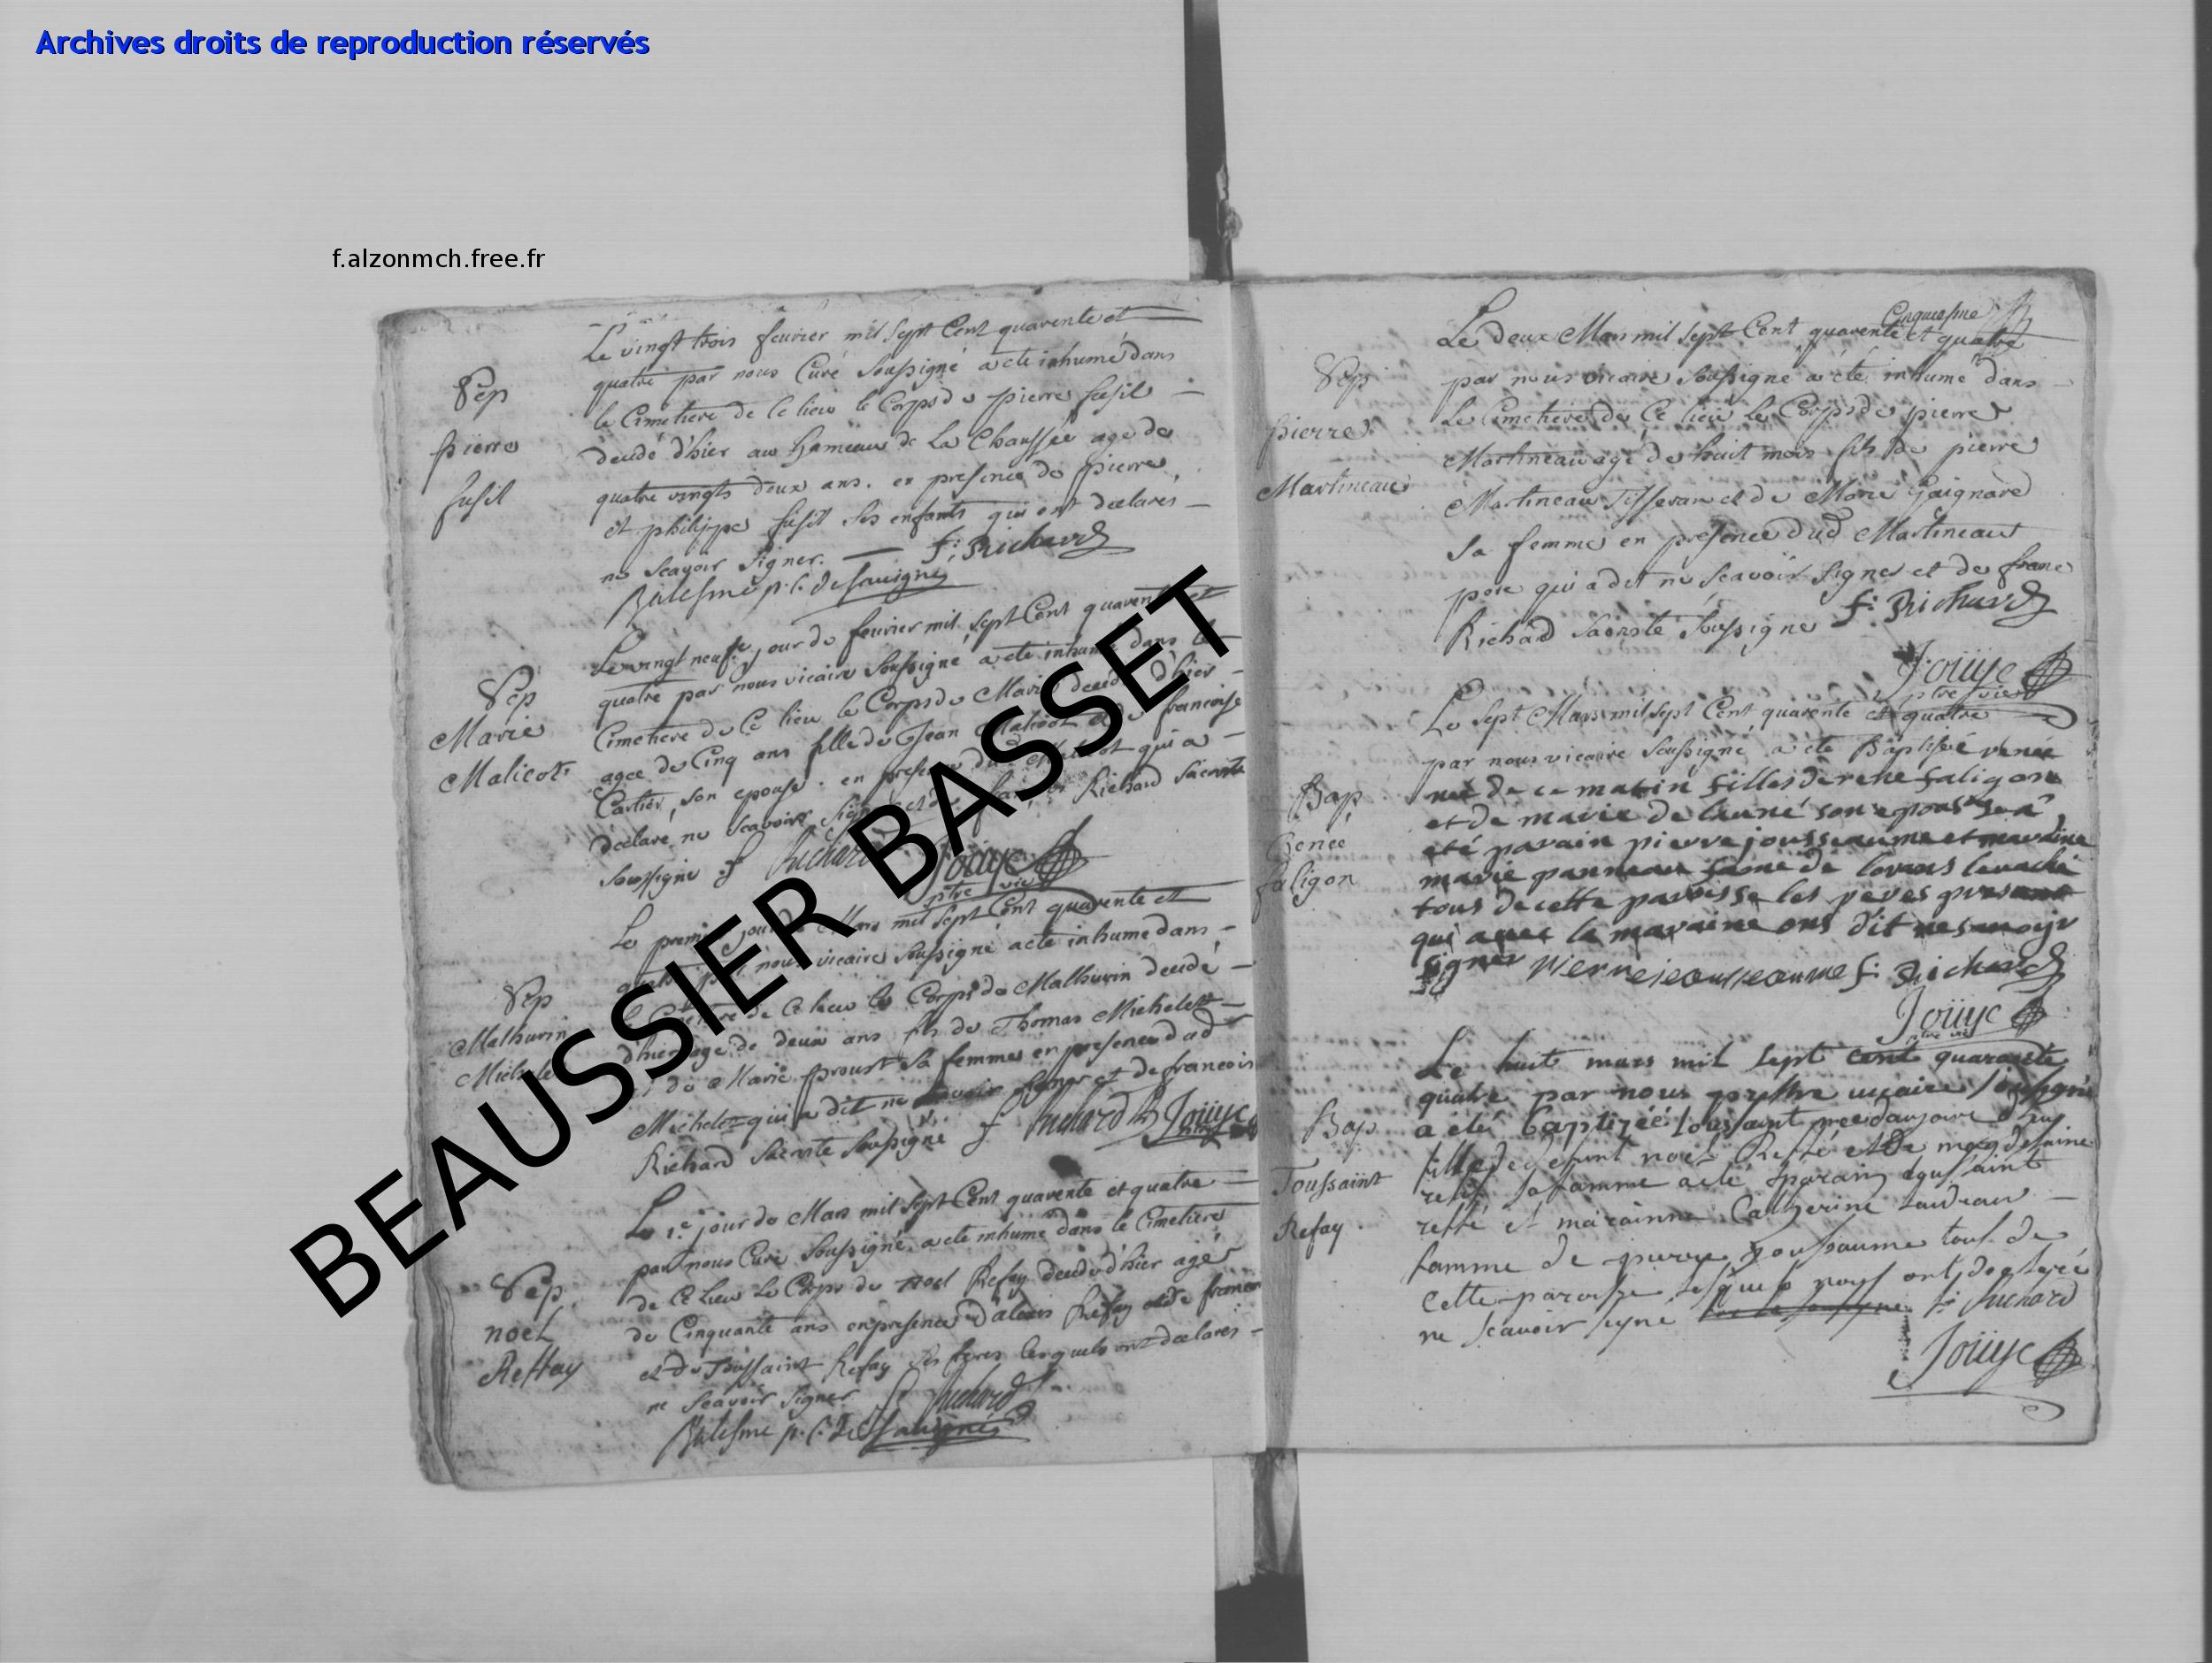 Archives droits de reproduction réservés
f.alzonmch.free.fr
BEAUSSIER BASSET
Le vingt trois feurier mil Sept Cent quarente et
quatre par nous Curé Soussigné a eté inhumé dans
le Cimetiere de Ce lieu le Corps de pierre fusil
decedé d'hier au hameau de La Chaussée agé de
quatre vingts deux ans. en presence de pierre
et philippes fusil Ses enfants qui ont declarés
ne Scavoir Signer. f: Richard
Balesme p. c. de Savigné
Sep
pierre
fusil
Le vingt neuf jour de feurier mil Sept Cent quarente et
quatre par nous vicaire Soussigné a eté inhumé dans le
Cimetiere de Ce lieu le Corps de Marie decedé d'hier
agee de Cinq ans fille de Jean Malicot et de francoise
Cartier, Son epouse. en presence dud. Malicot qui a
declaré ne Scavoir Signer et de Richard Sacriste
Soussigné f Richard Joüye
ptre vic
Sep
Marie
Malicot
Le premier jour de Mars mil Sept Cent quarente et
quatre par nous vicaire Soussigné a eté inhumé dans
le Cimetiere de Ce lieu le Corps de Mathurin decedé
d'hier age de deux ans fils de Thomas Michelet
de Marie proust Sa femme en presence dud
Michelet qui a dit ne Scavoir Signer et de francois
Richard Sacriste Soussigné f Richard Joüye
Sep
Mathurin
Michele
Le 1.e jour de Mars mil Sept Cent quarente et quatre
par nous Curé Soussigné, a eté inhumé dans le Cimetiere
de Ce Lieu Le Corps de noel Refay decedé d'hier agé
de Cinquante ans en presence d'alexis Refay et de francois
et de Toussaint Refay Ses freres lesquels ont declares
ne Scavoir Signer f Richard
Balesme p. c. de Savigné
Sep
noel
Reffay
Cinquesme
Le deux Mars mil Sept Cent quarente et quatre
par nous vicaire Soussigné a eté inhumé dans
Le Cimetiere de Ce lieu Le Corps de pierre
Martineau agé de huit mois fils de pierre
Martineau Tisseran et de Marie Gaignard
Sa femme en presence dud Martineau
pere qui a dit ne Scavoir Signer et de franc
Richard Sacriste Soussigné f: Richard
Joüye
ptre vic
Sep
pierre
Martineau
Le Sept Mars mil Sept Cent quarente et quatre
par nous vicaire Soussigné a eté Baptisée renée
neé de ce matin filles de rene faligon
et de marie de launé son epouse a
eté parain pierre jousseaume et maraine
marie panneau fame de
tous de cette paroisse les peres presant
qui avec la maraine ons dit ne sauoijr
signer pierre jousseaume f: Richard
Joüye
ptre vic
Bap
Renée
faligon
Le huit mars mil Sept Cent quarante
quatre par nous prestre vicaire Soussigné
a été baptizéé toussaint neé d'aujourd'huy
fille de defunt noel Reffé et De magdelaine
sa famme a eté parain toussaint
reffé et marainne Catherine taudeau
famme de pierre jousseaume tous de
cette paroisse lesquels nous ont declaré
ne scavoir signé f: Richard
Joüye
Bap
Toussaint
Refay